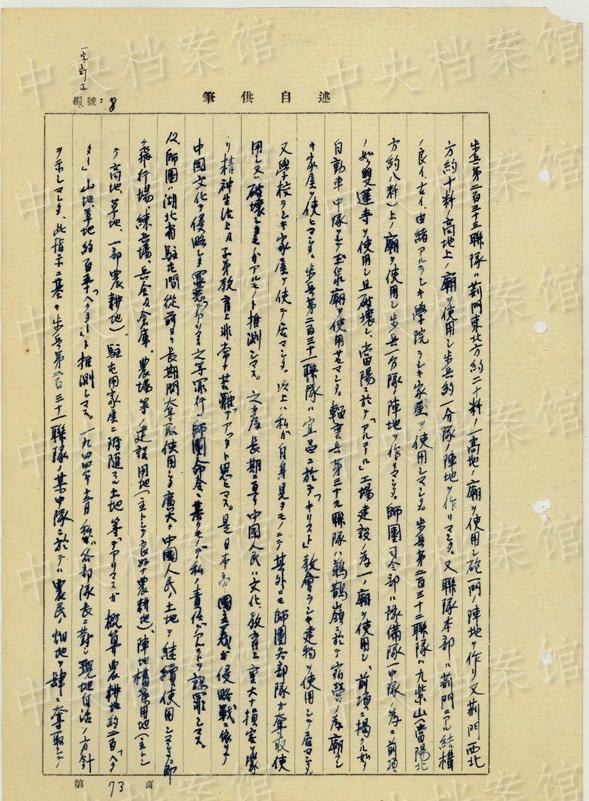 筆供自述
編號：8
歩兵第二百三十三聯隊ハ荊門東北方約二十粁ノ一高地ノ廟ヲ使用シ砲一門ノ陣地ヲ作リ又荊門西北
方約十粁ノ高地上ノ廟ヲ使用シ歩兵約一分隊ノ陣地ヲ作リマシタ。又聯隊本部ハ荊門ニアル結構
ノ良イ、古イ、由緒アルラシキ學院ラシキ家屋ヲ使用シマシタ。歩兵第二百三十二聯隊ハ九紫山（當陽北
方約八粁）上ノ廟ヲ使用シ歩兵一分隊ノ陣地ヲ作リマシタ。師團司令部ハ豫備隊一中隊ノ為ニ前項
ノ如ク雙蓮寺ヲ使用シ且破壊シ、當陽ニ於テ「アルコール」工場建設ノ為一ノ廟ヲ使用シ、前項ニ掲ゲル如ク
自動車中隊ヲシテ玉泉廟ヲ使用セシメマシタ。輜重兵第三十九聯隊ハ鴉鵲嶺ニ於テ宿營ノ為廟ラシ
キ家屋ヲ使ヒマシタ。歩兵第二百三十一聯隊ハ宜昌ニ於テ「キリスト」教會ラシキ建物ヲ使用シテ居マシタ。
又學校ラシキ家屋ヲ使ッテ居マシタ。以上ハ私ガ自身見タモノニテ其外ニモ師團各部隊ガ奪取使
用シ又ハ破壊シタモノガアルコト推測シマス。之等ハ長期ニ亘リ中國人民ハ文化教育ニ重大ナ損害ヲ蒙
リ精神生活上及子弟教育上非常ナ苦難デアッタト思ヒマス。是日本帝國主義ガ侵略戦ニ依リテ
中國文化ヲ侵略シタ罪悪デアリマス
師團ハ湖北省駐屯間從前ヨリ長期間奪取使用シタ廣大ナ中國人民ノ土地ヲ繼續使用シマシタ。即
飛行場、練兵場、兵舎及倉庫、農場等ノ建設用地（主トシテ良好ナ農耕地）、陣地構築用地（主トシ
テ高地、草地、一部農耕地）駐屯用家屋ニ附随スル土地等デアリマスガ概算農耕地約二百「ヘク
タール」山地草地約百五十「ヘクタール」ト推測シマス。一九四四年十二月私ハ各部隊長ニ對シ現地自活ノ方針
ヲ示シマシタ。此指示ニ基キ歩兵第二百三十一聯隊ノ某中隊ニ於テハ農民ノ畑地ヲ肆ニ奪取シテ
第 73 頁
中央档案馆